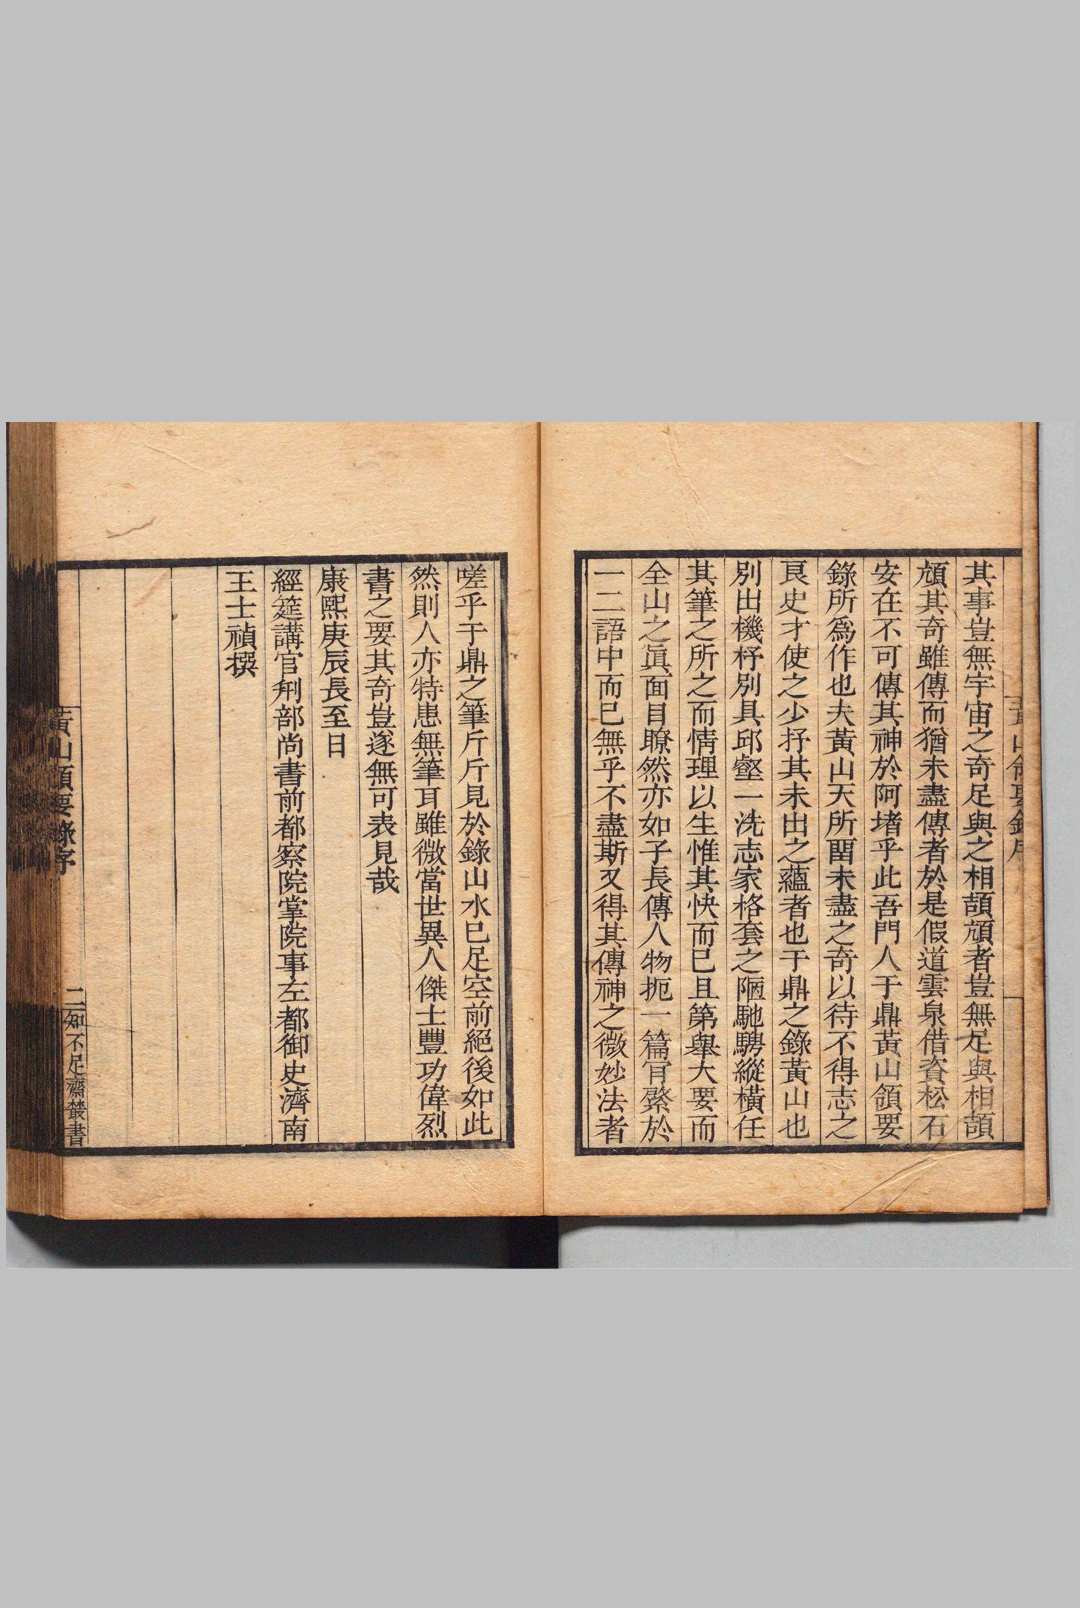 其事豈無宇宙之奇足與之相頡頏者豈無足與相頡
頏其奇雖傳而猶未盡傳者於是假道雲泉借資松石
安在不可傳其神於阿堵乎此吾門人于鼎黃山領要
錄所爲作也夫黃山天所畱未盡之奇以待不得志之
良史才使之少抒其未出之蘊者也于鼎之錄黃山也
別出機杼別具邱壑一洗志家格套之陋馳騁縱橫任
其筆之所之而情理以生惟其快而已且第舉大要而
全山之眞面目瞭然亦如子長傳人物扼一篇肎綮於
一二語中而已無乎不盡斯又得其傳神之微妙法者
嗟乎于鼎之筆斤斤見於錄山水已足空前絕後如此
然則人亦特患無筆耳雖微當世異人傑士豐功偉烈
書之要其奇豈遂無可表見哉
康熙庚辰長至日
經筵講官刑部尚書前都察院掌院事左都御史濟南
王士禎撰
黃山領要錄序
二知不足齋叢書